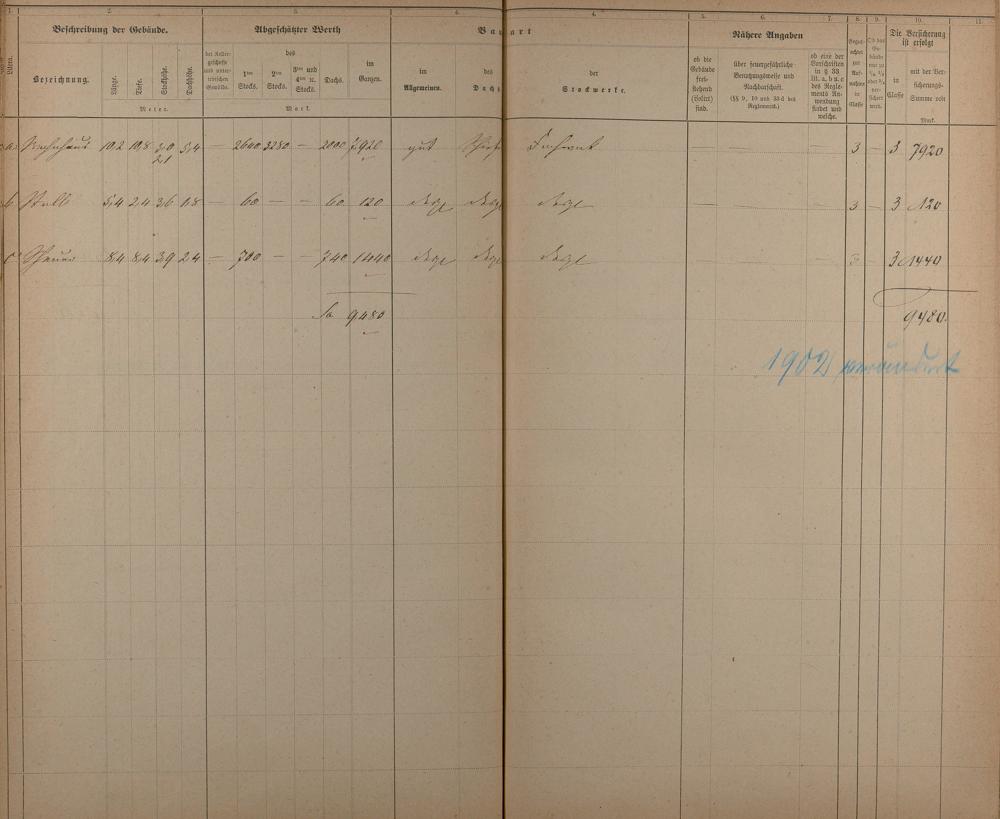 1. 2. 3. 4. 4. 5. 6. 7. 8. 9. 10. 11.
Beschreibung der Gebäude. Abgeschätzter Werth Bauart Nähere Angaben Die Versicherung ist erfolgt
Liten. Bezeichnung. Länge. Tiefe. Stockhöhe. Dachhöhe.
Meter.
der Keller-
geschosse
und unter-
irdischen
Gewölbe.
des
1ten Stocks. 2ten Stocks. 3ten und 4ten u. Stocks. Dachs. im Ganzen.
Mark.
im Allgemeinen. des Dachs der Stockwerke.
ob die
Gebäude
frei-
stehend
(isolirt)
sind.
über feuergefährliche
Benutzungsweise und
Nachbarschaft.
(§§ 9, 10 und 33 d des
Reglements.)
ob eine der
Vorschriften
in § 33
lit. a. b u. c
des Regle-
ments An-
wendung
findet und
welche.
in Classe
mit der Ver-
sicherungs-
Summe von
Mark.
a. Wohnhaus 10,2 10,8 3,0 2,1 5,4 — 2640 3280 — 2000 7920 gut Schief Fachwerk — — — 3 — 3 7920
b. Stall 5,4 2,4 3,6 1,8 — 60 — — 60 120 desgl desgl desgl — — — 3 — 3 120
c Scheuer 8,4 8,4 3,9 2,4 — 700 — — 740 1440 desgl desgl desgl — — — 3 — 3 1440
Sa 9480 9480.
1902 verändert